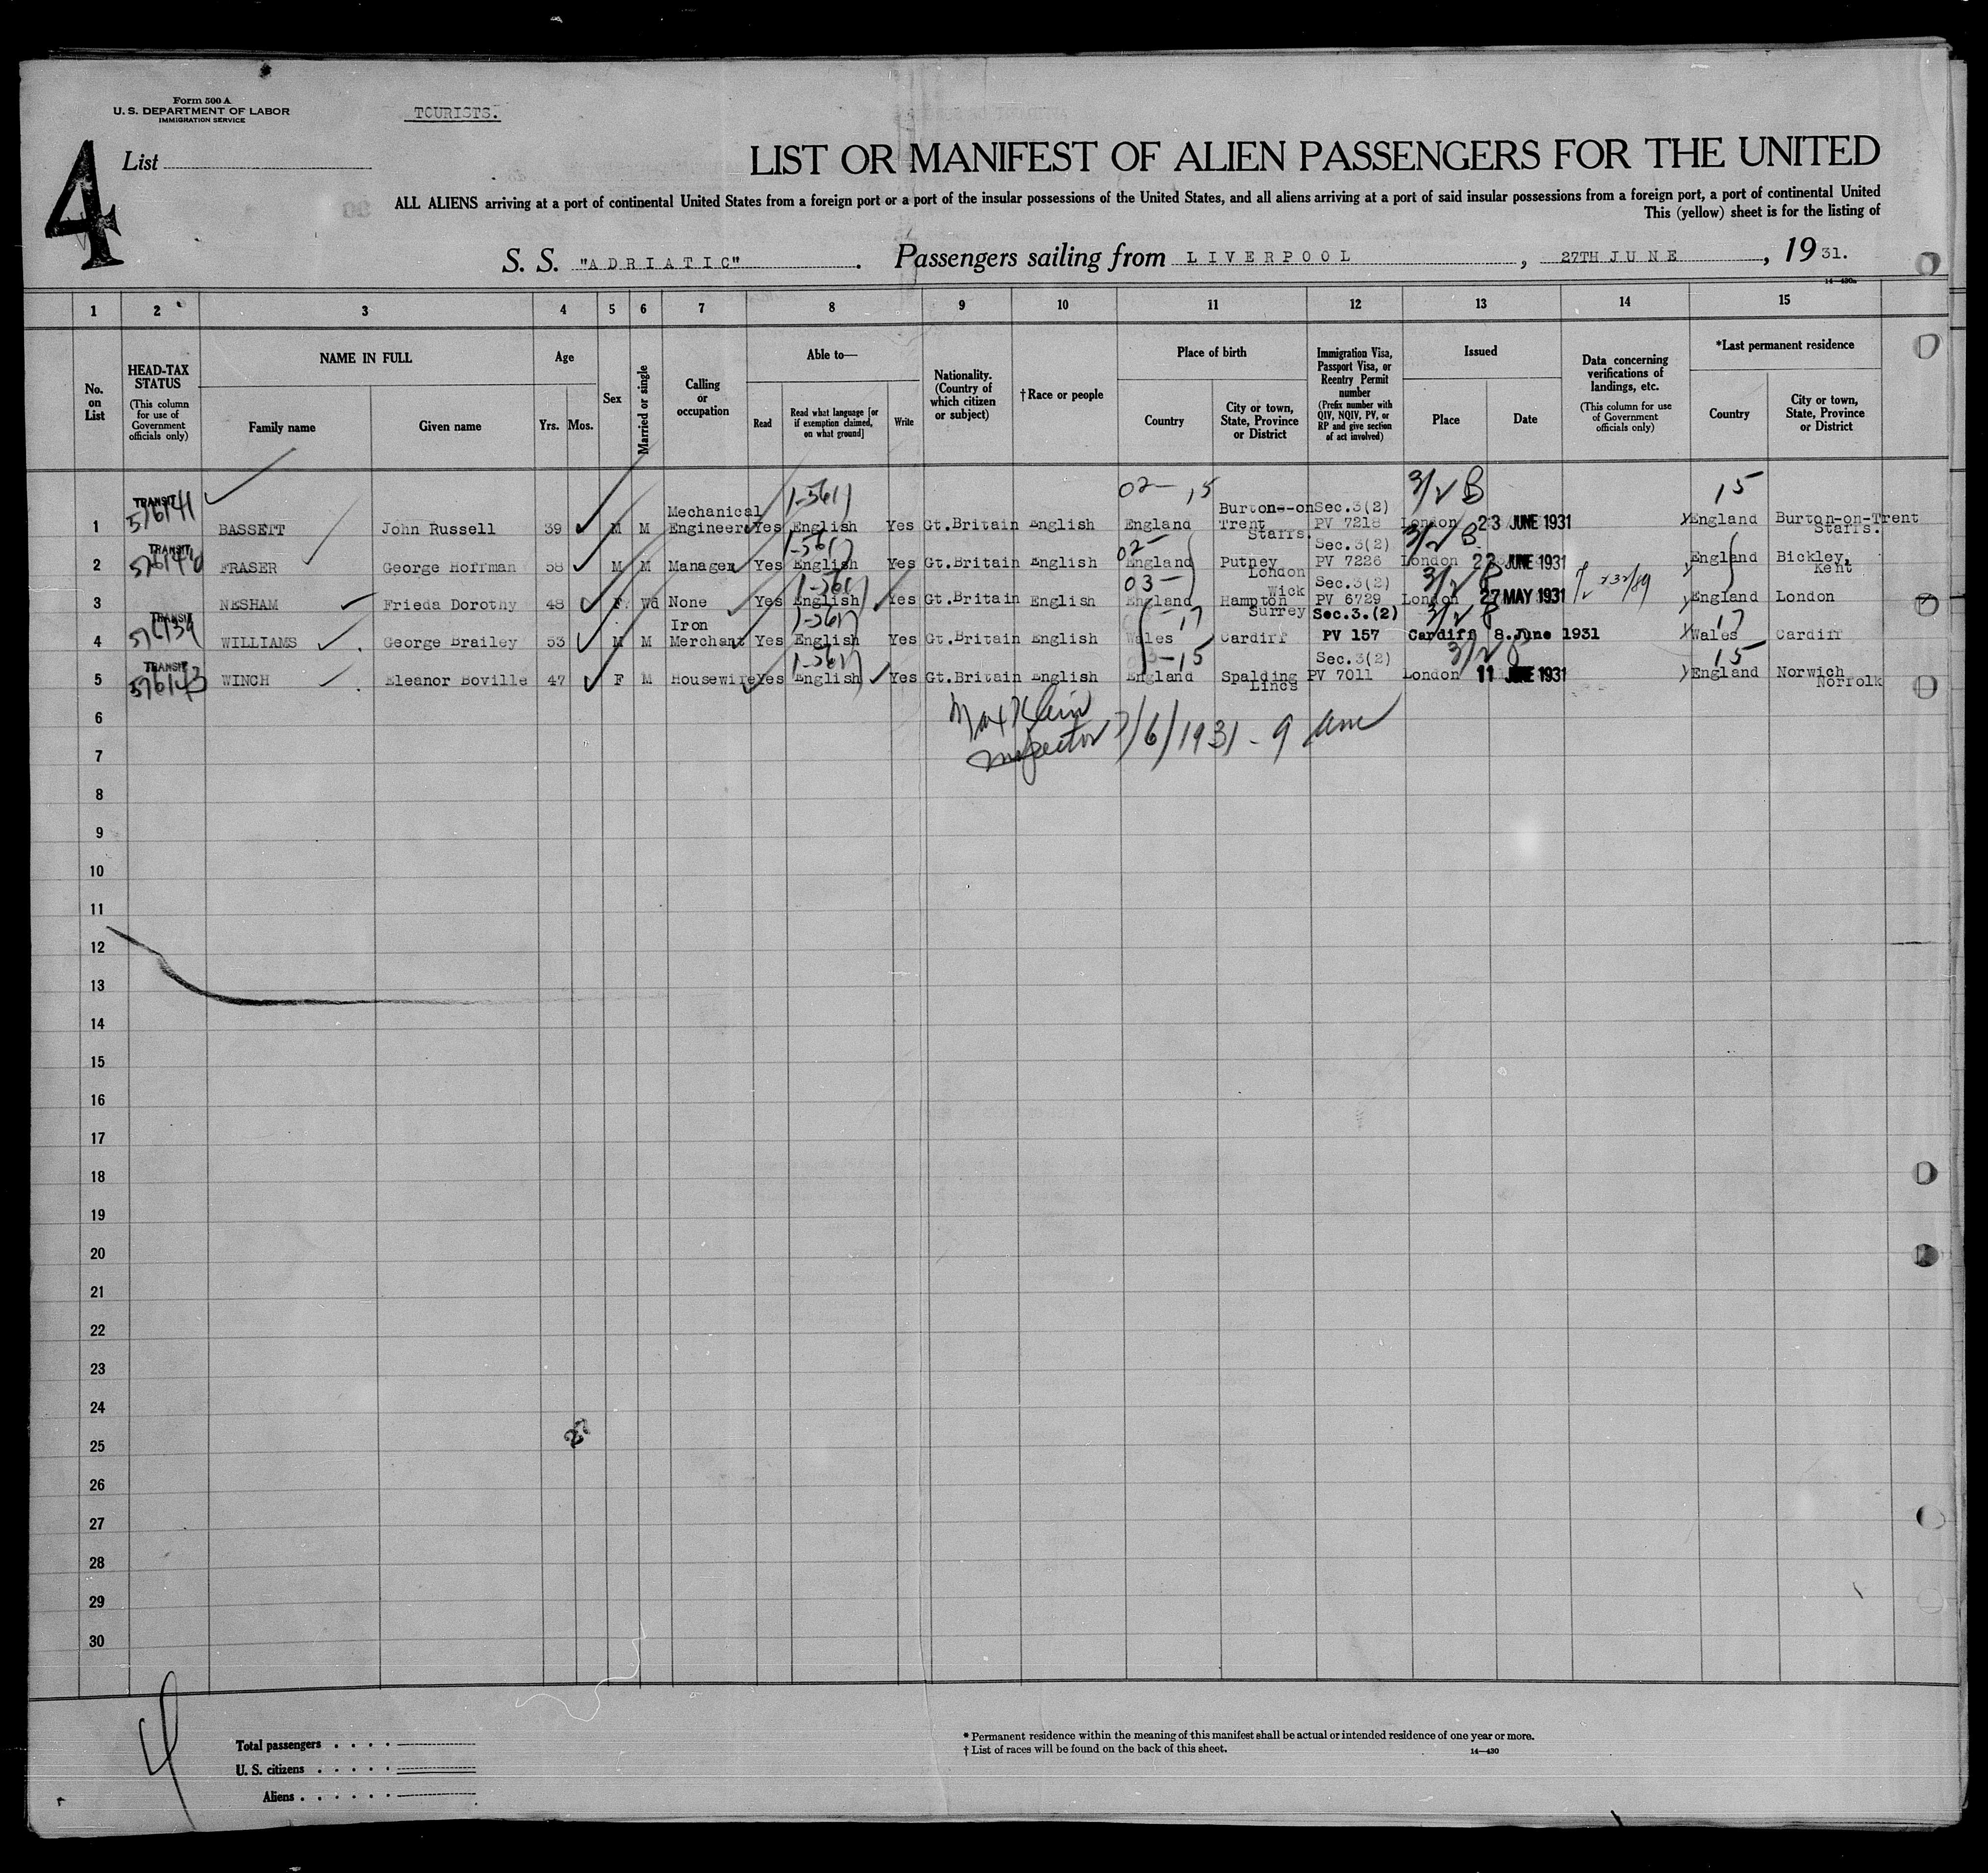 Form 500 A
U. S. DEPARTMENT OF LABOR
IMMIGRATION SERVICE
TOURISTS.
4
List
LIST OR MANIFEST OF ALIEN PASSENGERS FOR THE UNITED
ALL ALIENS arriving at a port of continental United States from a foreign port or a port of the insular possessions of the United States, and all aliens arriving at a port of said insular possessions from a foreign port, a port of continental United
This (yellow) sheet is for the listing of
S. S. "ADRIATIC" . Passengers sailing from LIVERPOOL , 27TH JUNE , 19 31.
14—430a
1 2 3 4 5 6 7 8 9 10 11 12 13 14 15
No. on List
HEAD-TAX STATUS (This column for use of Government officials only)
NAME IN FULL
Family name
Given name
Age
Yrs.
Mos.
Sex
Married or single
Calling or occupation
Able to—
Read
Read what language [or if exemption claimed, on what ground]
Write
Nationality. (Country of which citizen or subject)
†Race or people
Place of birth
Country
City or town, State, Province or District
Immigration Visa, Passport Visa, or Reentry Permit number (Prefix number with QIV, NQIV, PV, or RP and give section of act involved)
Issued
Place
Date
Data concerning verifications of landings, etc. (This column for use of Government officials only)
*Last permanent residence
Country
City or town, State, Province or District
1 TRANSIT 576141 BASSETT John Russell 39 M M Mechanical Engineer Yes English Yes Gt.Britain English England Burton--on Trent Staffs. Sec.3(2) PV 7218 London 23 JUNE 1931 England Burton-on-Trent Staffs.
2 TRANSIT FRASER George Hoffman 58 M M Manager Yes English Yes Gt.Britain English England Putney London Sec.3(2) PV 7226 London JUNE 1931 England Bickley, Kent
3 NESHAM Frieda Dorothy 48 F Wd None Yes English Yes Gt.Britain English England Hampton Wick Surrey Sec.3(2) PV 6729 London 27 MAY 1931 England London
4 TRANSIT 576139 WILLIAMS George Brailey 53 M M Iron Merchant Yes English Yes Gt.Britain English Wales Cardiff Sec.3.(2) PV 157 Cardiff 8.June 1931 Wales Cardiff
5 TRANSIT 576143 WINCH Eleanor Boville 47 F M Housewife Yes English Yes Gt.Britain English England Spalding Lincs Sec.3(2) PV 7011 London 11 JUNE 1931 England Norwich Norfolk
6
Max Klein
Inspector 7/6/1931 - 9 am
7
8
9
10
11
12
13
14
15
16
17
18
19
20
21
22
23
24
25
26
27
28
29
30
4
Total passengers
U. S. citizens
Aliens
* Permanent residence within the meaning of this manifest shall be actual or intended residence of one year or more.
† List of races will be found on the back of this sheet.
14—430